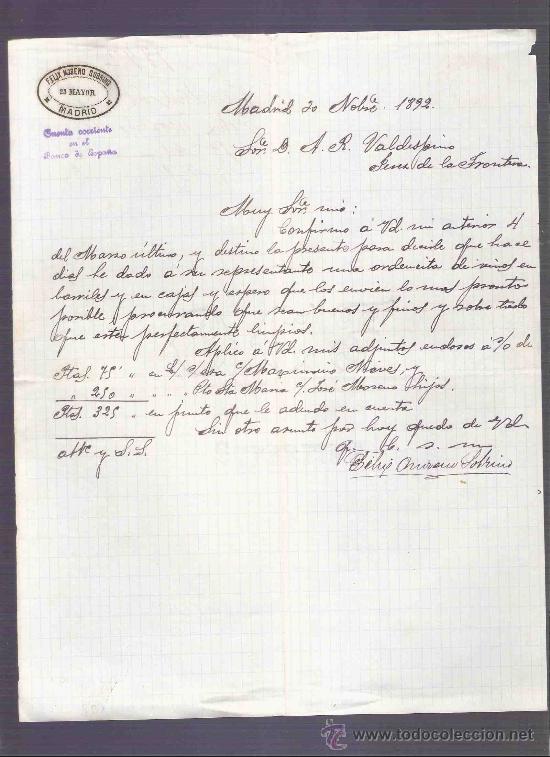 FELIX MORENO SOBRINO
23 MAYOR
MADRID
Cuenta corriente
en el
Banco de España
Madrid 20 Nobre. 1892.
Sor. D. A. R. Valdespino
Jerez de la Frontera.
Muy Sor. mio:
Confirmo á Vd. mi anterior 4
del Marzo último, y destino la presente para decirle que hace
dias he dado á su representante una ordencita de vinos en
barriles y en cajas y espero que los envien lo mas pronto
posible, procurando que sean buenos y finos y sobre todo
que esten perfectamente limpios.
Aplico á Vd. mis adjuntos endosos á de
Ptas. 75 " en c/ Maximino Moves, y
" 250 " " " Pto Sta Maria c/ José Moreno Hijos.
Ptas. 325 " en junto que le adeudo en cuenta
Sin otro asunto por hoy quedo de Vd.
atto y S.S.
q. b. s. m
Félix Moreno Sobrino
www.todocoleccion.net